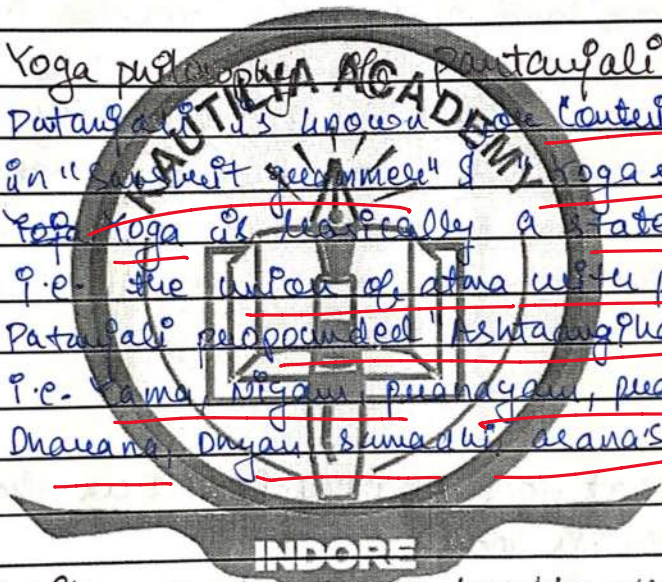 Yoga philosophy of pantanjali
Patanjali is known for "Contri
in "sanskrit grammer" & "Yoga s
Yoga is basically a state
i.e. the union of atma with p
Patanjali propounded "Ashtaangik
i.e. Yama, Niyam, pranayam, pra
Dharana, Dhyan samadhi, asanas
KAUTILYA ACADEMY
INDORE